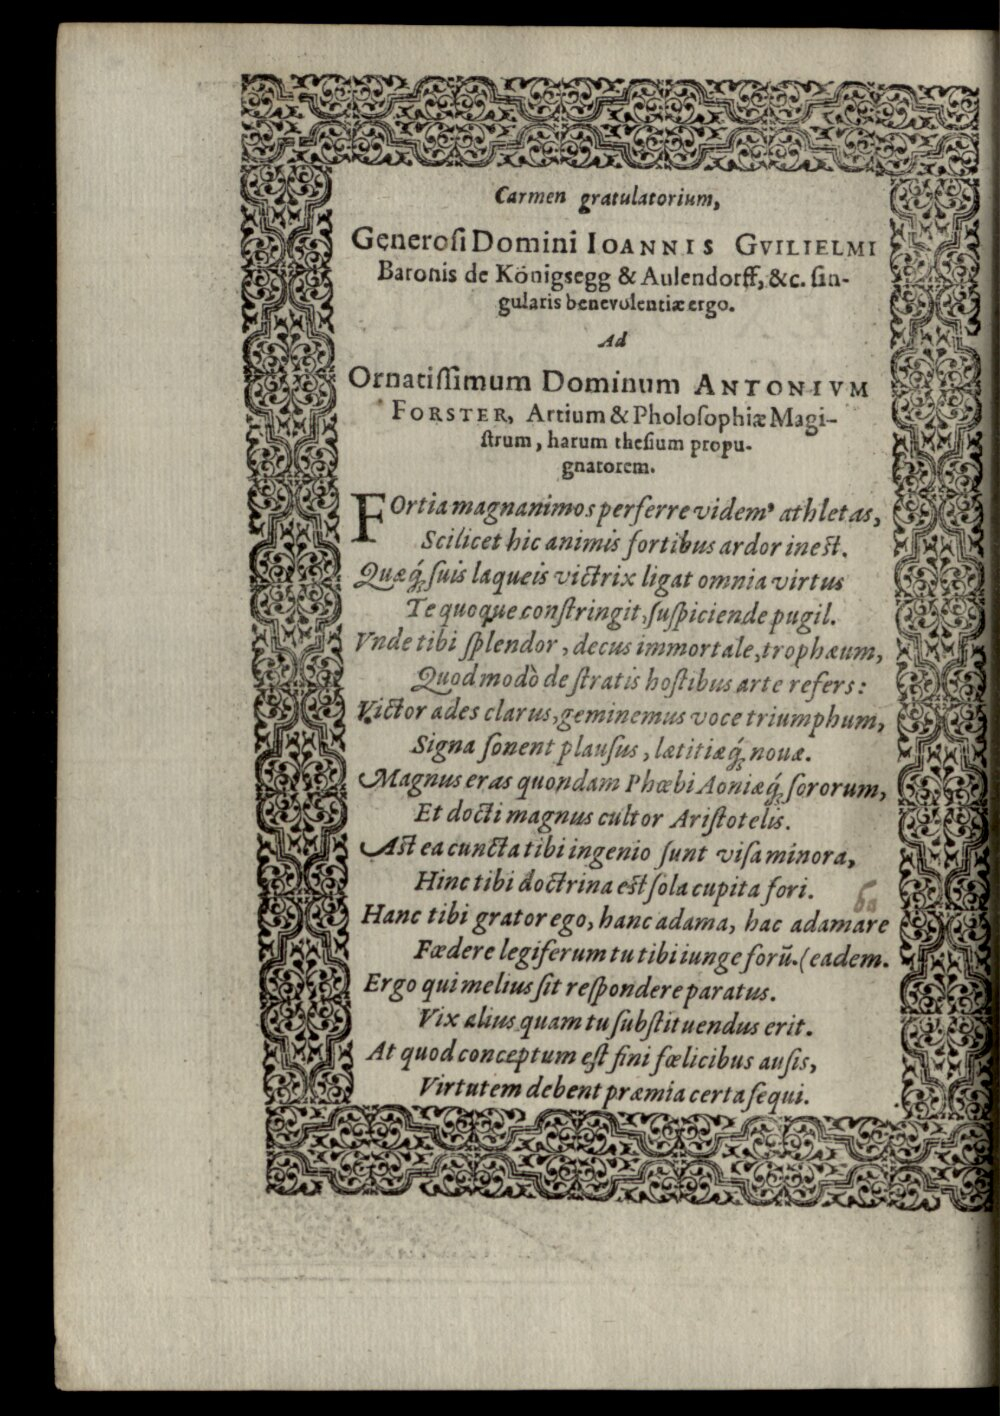 Carmen gratulatorium,
Generoſi Domini IOANNIS GVILIELMI
Baronis de Königsegg & Aulendorff, &c. ſin-
gularis benevolentiæ ergo.
Ad
Ornatiſſimum Dominum ANTONIVM
FORSTER, Artium & Pholoſophiæ Magi-
ſtrum, harum theſium propu-
gnatorem.
FOrtia magnanimos perferre videmꝰ athletas,
Scilicet hic animis fortibus ardor ineſt.
Quæq́; ſuis laqueis victrix ligat omnia virtus
Te quoque conſtringit, ſuſpiciende pugil.
Vnde tibi ſplendor, decus immortale, trophæum,
Quod modò de ſtratis hoſtibus arte refers:
Victor ades clarus, geminemus voce triumphum,
Signa ſonent plauſus, lætitiæq́; novæ.
Magnus eras quondam Phœbi Aoniæq́; ſororum,
Et docti magnus cultor Ariſtotelis.
Aſt ea cuncta tibi ingenio ſunt viſa minora,
Hinc tibi doctrina eſt ſola cupita fori.
Hanc tibi grator ego, hanc adama, hac adamare
Fædere legiferum tu tibi iunge forū. (eadem.
Ergo qui melius ſit reſpondere paratus.
Vix alius quam tu ſubſtituendus erit.
At quod conceptum eſt fini fœlicibus auſis,
Virtutem debent præmia certa ſequi.